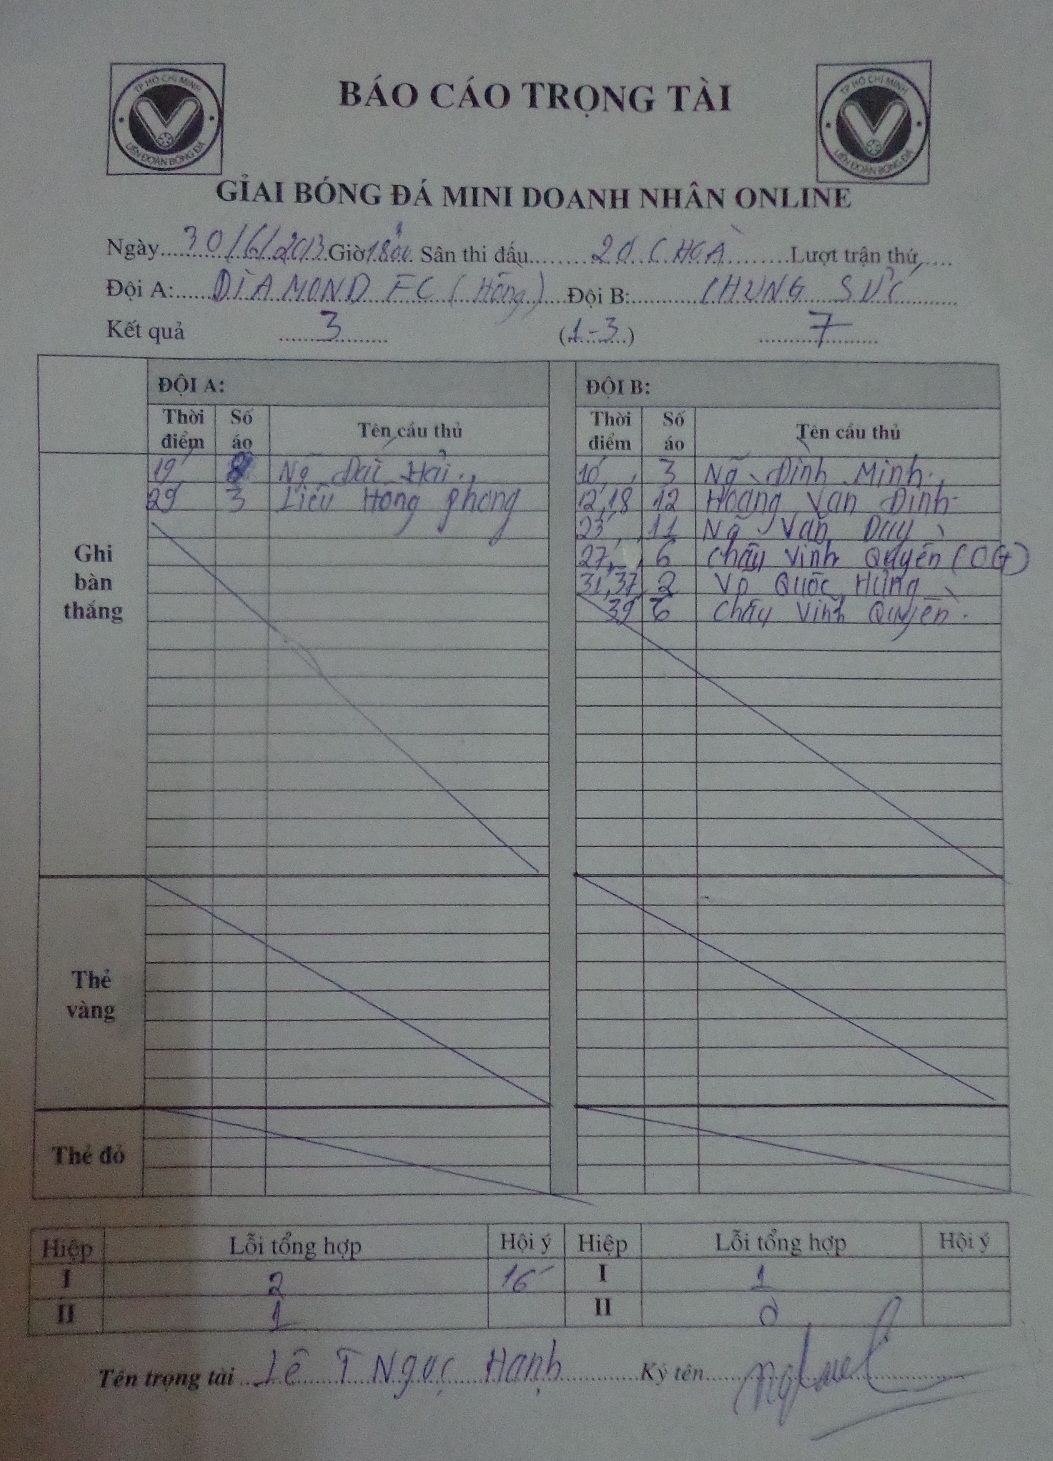 TP HỒ CHÍ MINH
LIÊN ĐOÀN BÓNG ĐÁ
BÁO CÁO TRỌNG TÀI
TP HỒ CHÍ MINH
LIÊN ĐOÀN BÓNG ĐÁ
GIẢI BÓNG ĐÁ MINI DOANH NHÂN ONLINE
Ngày 30/6/2013 Giờ Sân thi đấu 2d CHOA Lượt trận thứ
Đội A: DIAMOND FC (Hồng) Đội B: CHUNG SỨC
Kết quả 3 (1-3) 7
ĐỘI A: ĐỘI B:
Thời điểm Số áo Tên cầu thủ Thời điểm Số áo Tên cầu thủ
Ghi bàn thắng
19' 8 Ng Đại Hải 10' 3 Ng Đình Minh
29' 3 Liêu Hồng Phong 12,18 12 Hoàng Văn Định
23' 11 Ng Văn Duy
27' 6 Châu Vinh Quyền (OG)
31,37 2 Võ Quốc Hùng
39 6 Châu Vinh Quyền
Thẻ vàng
Thẻ đỏ
Hiệp Lỗi tổng hợp Hội ý Hiệp Lỗi tổng hợp Hội ý
I 2 16' I 1
II 1 II 0
Tên trọng tài Lê T Ngọc Hạnh Ký tên